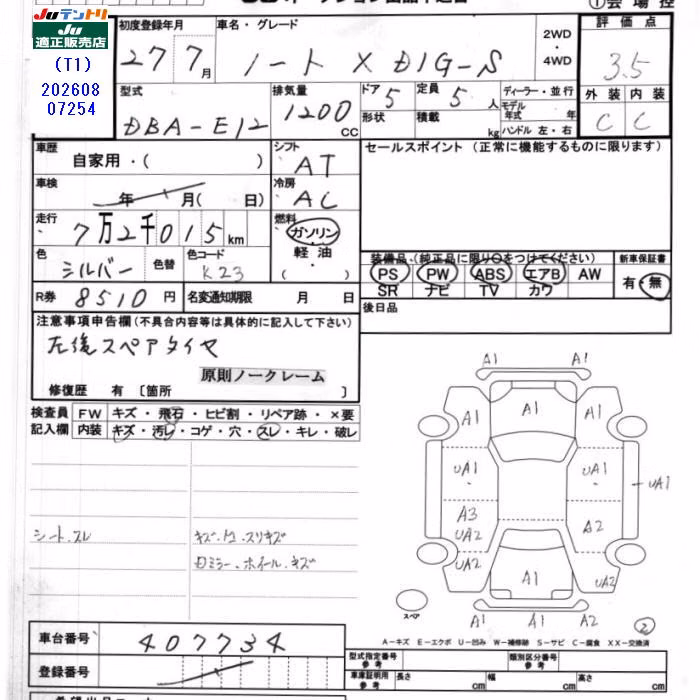 Juテントリ
Ju
適正販売店
(T1)
202608
07254
①会場控
初度登録年月
27 7月
車名・グレード
ノート X DIG-S
2WD
・
4WD
評価点
3.5
型式
DBA-E12
排気量
1200
CC
ドア
5
定員
5人
形状
積載
kg
ディーラー・並行
モデル年式 年
ハンドル 左・右
外装 内装
C C
車歴
自家用・( )
シフト
AT
セールスポイント (正常に機能するものに限ります)
車検
年 月( 日)
冷房
AC
走行
7万2千015km
燃料
ガソリン
軽油
( ・ )
色
シルバー
色替
色コード
K23
装備品(純正品に限り○をつけてください)
PS PW ABS エアB AW
SR ナビ TV カワ
新車保証書
有・無
R券 8510円
名変通知期限 月 日
後日品
注意事項申告欄(不具合内容等は具体的に記入して下さい)
左後スペアタイヤ
原則ノークレーム
修復歴 有 〔箇所 〕
検査員
記入欄
FW キズ・飛石・ヒビ割・リペア跡・×要
内装 キズ・汚レ・コゲ・穴・スレ・キレ・破レ
シート.スレ
キズ.凹.スリキズ
Dミラー.ホイール.キズ
A1 A1
A1 A1 A1
UA1 UA1 UA1
A3
UA2 A2
UA2 A1 UA2
スペア
A1 A1 A2
②
A-キズ E-エクボ U-凹み W-補修跡 S-サビ C-腐食 XX-交換済
車台番号 407734
登録番号
型式指定番号
参考
類別区分番号
参考
車庫証明用
参考
長さ cm 幅 cm 高さ cm